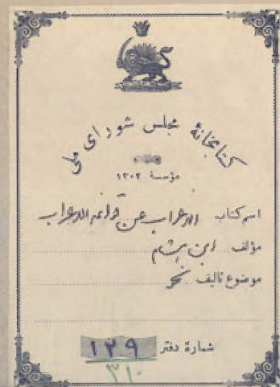 کتابخانهٔ مجلس شورای ملی
مؤسسهٔ ۱۳۰۲
اسم کتاب الاعراب عن قواعد الاعراب
مؤلف ابن هشام
موضوع تالیف نحو
شمارهٔ دفتر ۱۳۹
۳۱۰